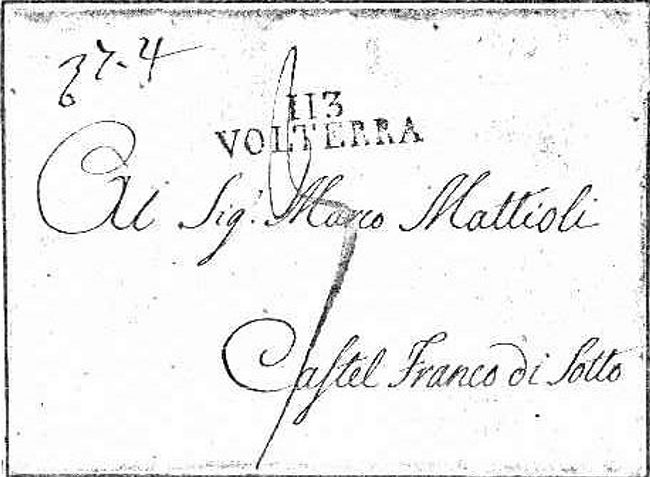 37-4
113
VOLTERRA
Al Sig.r Marco Mattioli
Castel Franco di Sotto